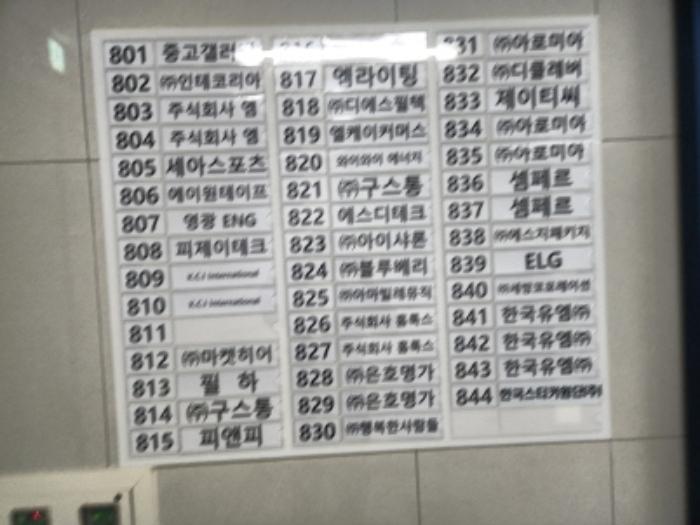 801 중고갤러
802 ㈜인테코리아
803 주식회사 엠
804 주식회사 엠
805 세아스포츠
806 에이원테이프
807 영광 ENG
808 피제이테크
809 K.C.I International
810 K.C.I International
811
812 ㈜마켓히어
813 필 하
814 ㈜구스통
815 피앤피
817 엠라이팅
818 ㈜디에스필텍
819 엘케이커머스
820 와이와이 에너지
821 ㈜구스통
822 에스디테크
823 ㈜아이샤론
824 ㈜블루베리
825 ㈜아마빌레뮤직
826 주식회사 홈록스
827 주식회사 홈록스
828 ㈜은호명가
829 ㈜은호명가
830 ㈜행복한사람들
831 ㈜아로미아
832 ㈜디클레버
833 제이티씨
834 ㈜아로미아
835 ㈜아로미아
836 셈페르
837 셈페르
838 ㈜에스지패키지
839 ELG
840 ㈜세왕코포레이션
841 한국유엠㈜
842 한국유엠㈜
843 한국유엠㈜
844